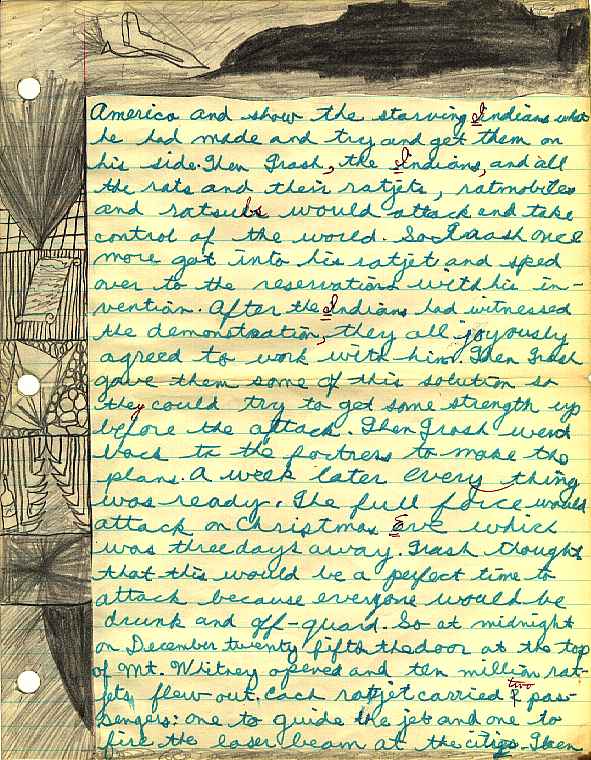 America and show the starving Indians what
he had made and try and get them on
his side. Then Trash, the Indians, and all
the rats and their ratjets, ratmobiles
and ratsubs would attack and take
control of the world. So Trash once
more got into his ratjet and sped
over to the reservations with his in-
vention. After the Indians had witnessed
the demonstration, they all joyously
agreed to work with him. Then Trash
gave them some of this solution so
they could try to get some strength up
before the attack. Then Trash went
back to the fortress to make the
plans. A week later every thing
was ready. The full force would
attack on Christmas Eve which
was three days away. Trash thought
that this would be a perfect time to
attack because everyone would be
drunk and off-guard. So at midnight
on December twenty fifth the door at the top
of Mt. Whitney opened and ten million rat-
jets flew out. Each ratjet carried two pas-
sengers: one to guide the jet and one to
fire the laser beam at the cities. Then